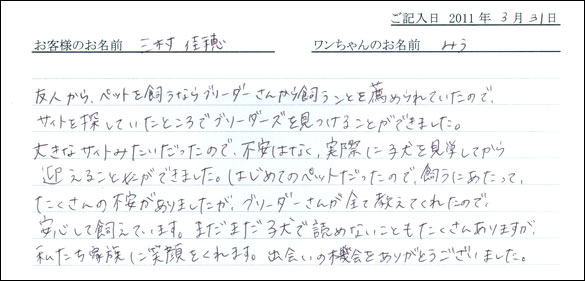 ご記入日 2011年 3月 31日
お客様のお名前 三村 佳穂 ワンちゃんのお名前 みう
友人から、ペットを飼うならブリーダーさんから飼うことを薦められていたので、
サイトを探していたところでブリーダーズを見つけることができました。
大きなサイトみたいだったので、不安はなく、実際に子犬を見学してから
迎えることができました。はじめてのペットだったので、飼うにあたって、
たくさんの不安がありましたが、ブリーダーさんが全て教えてくれたので、
安心して飼えています。まだまだ子犬で読めないこともたくさんありますが、
私たち家族に笑顔をくれます。出会いの機会をありがとうございました。